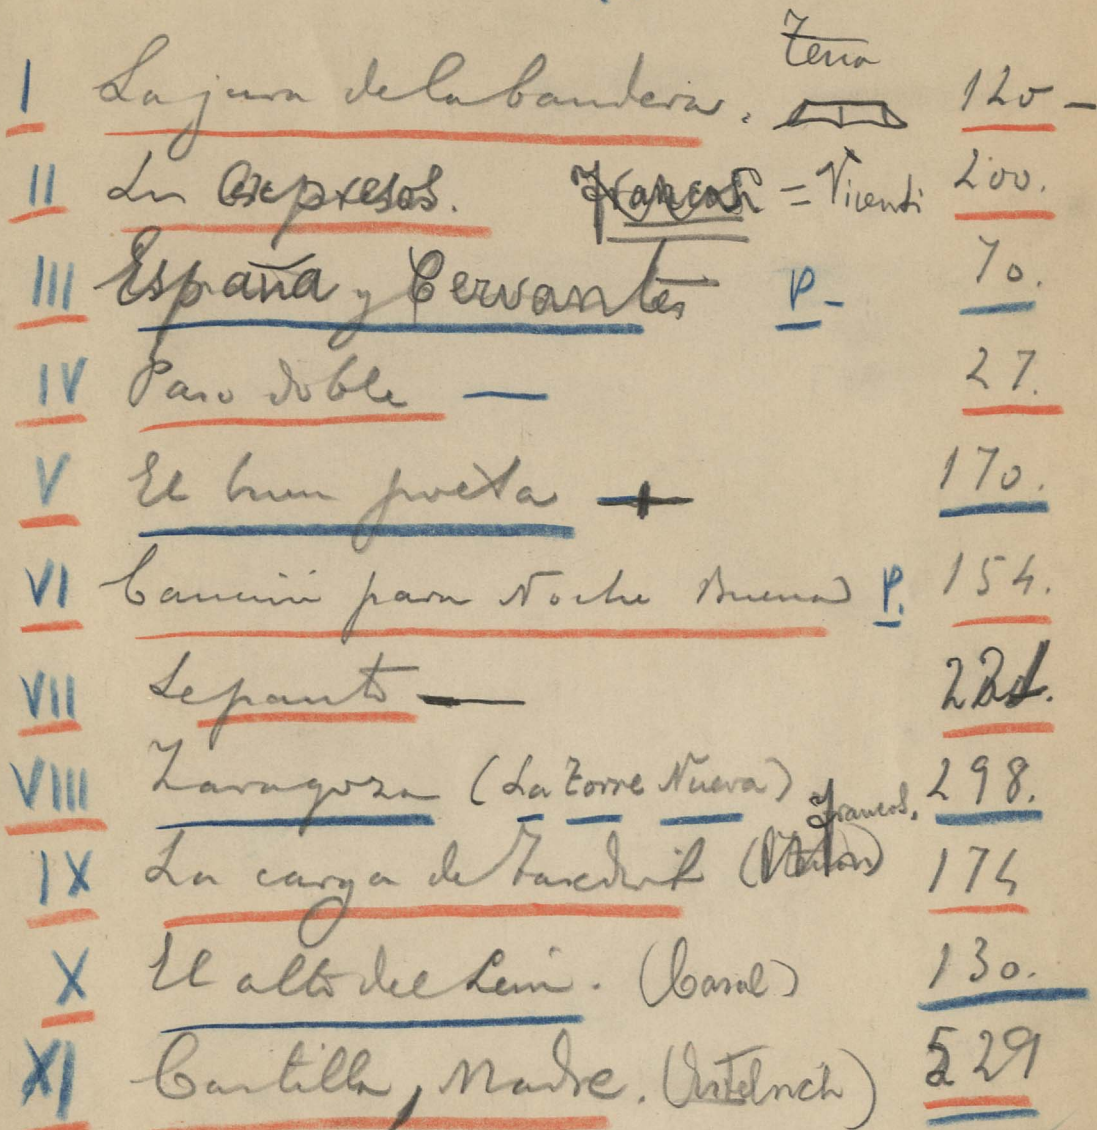 Tena
I La jura de la bandera. 120 -
II Los Expresos. Francos = Vicenti 200.
III España y Cervantes P- 70.
IV Paso doble — 27.
V El buen poeta 170.
VI Canción para Noche Buena P. 154.
VII Lepanto —
VIII Zaragoza (La Torre Nueva) 298.
Francos.
IX La carga de Taxdirt 174
X El alto del León. (Casal) 130.
XI Castilla, Madre. 529